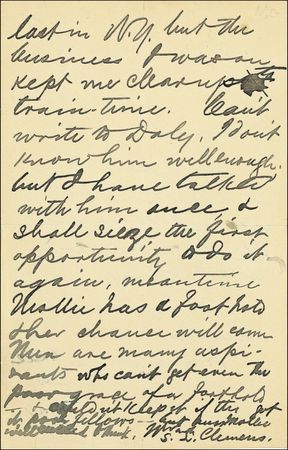 last in N.Y. but the
business I was on
kept me clear up to
train-time. Can't
write to Daly. Don't
know him well enough.
but I have talked
with him once, &
shall sieze the first
opportunity to do it
again, meantime
Mollie has a foot-hold
& her chance will come
There are many aspi-
rants who can't get even the
poor grace of a foothold
& couldn't keep it if they got
it, poor fellows— but
will I think.
S. L. Clemens.